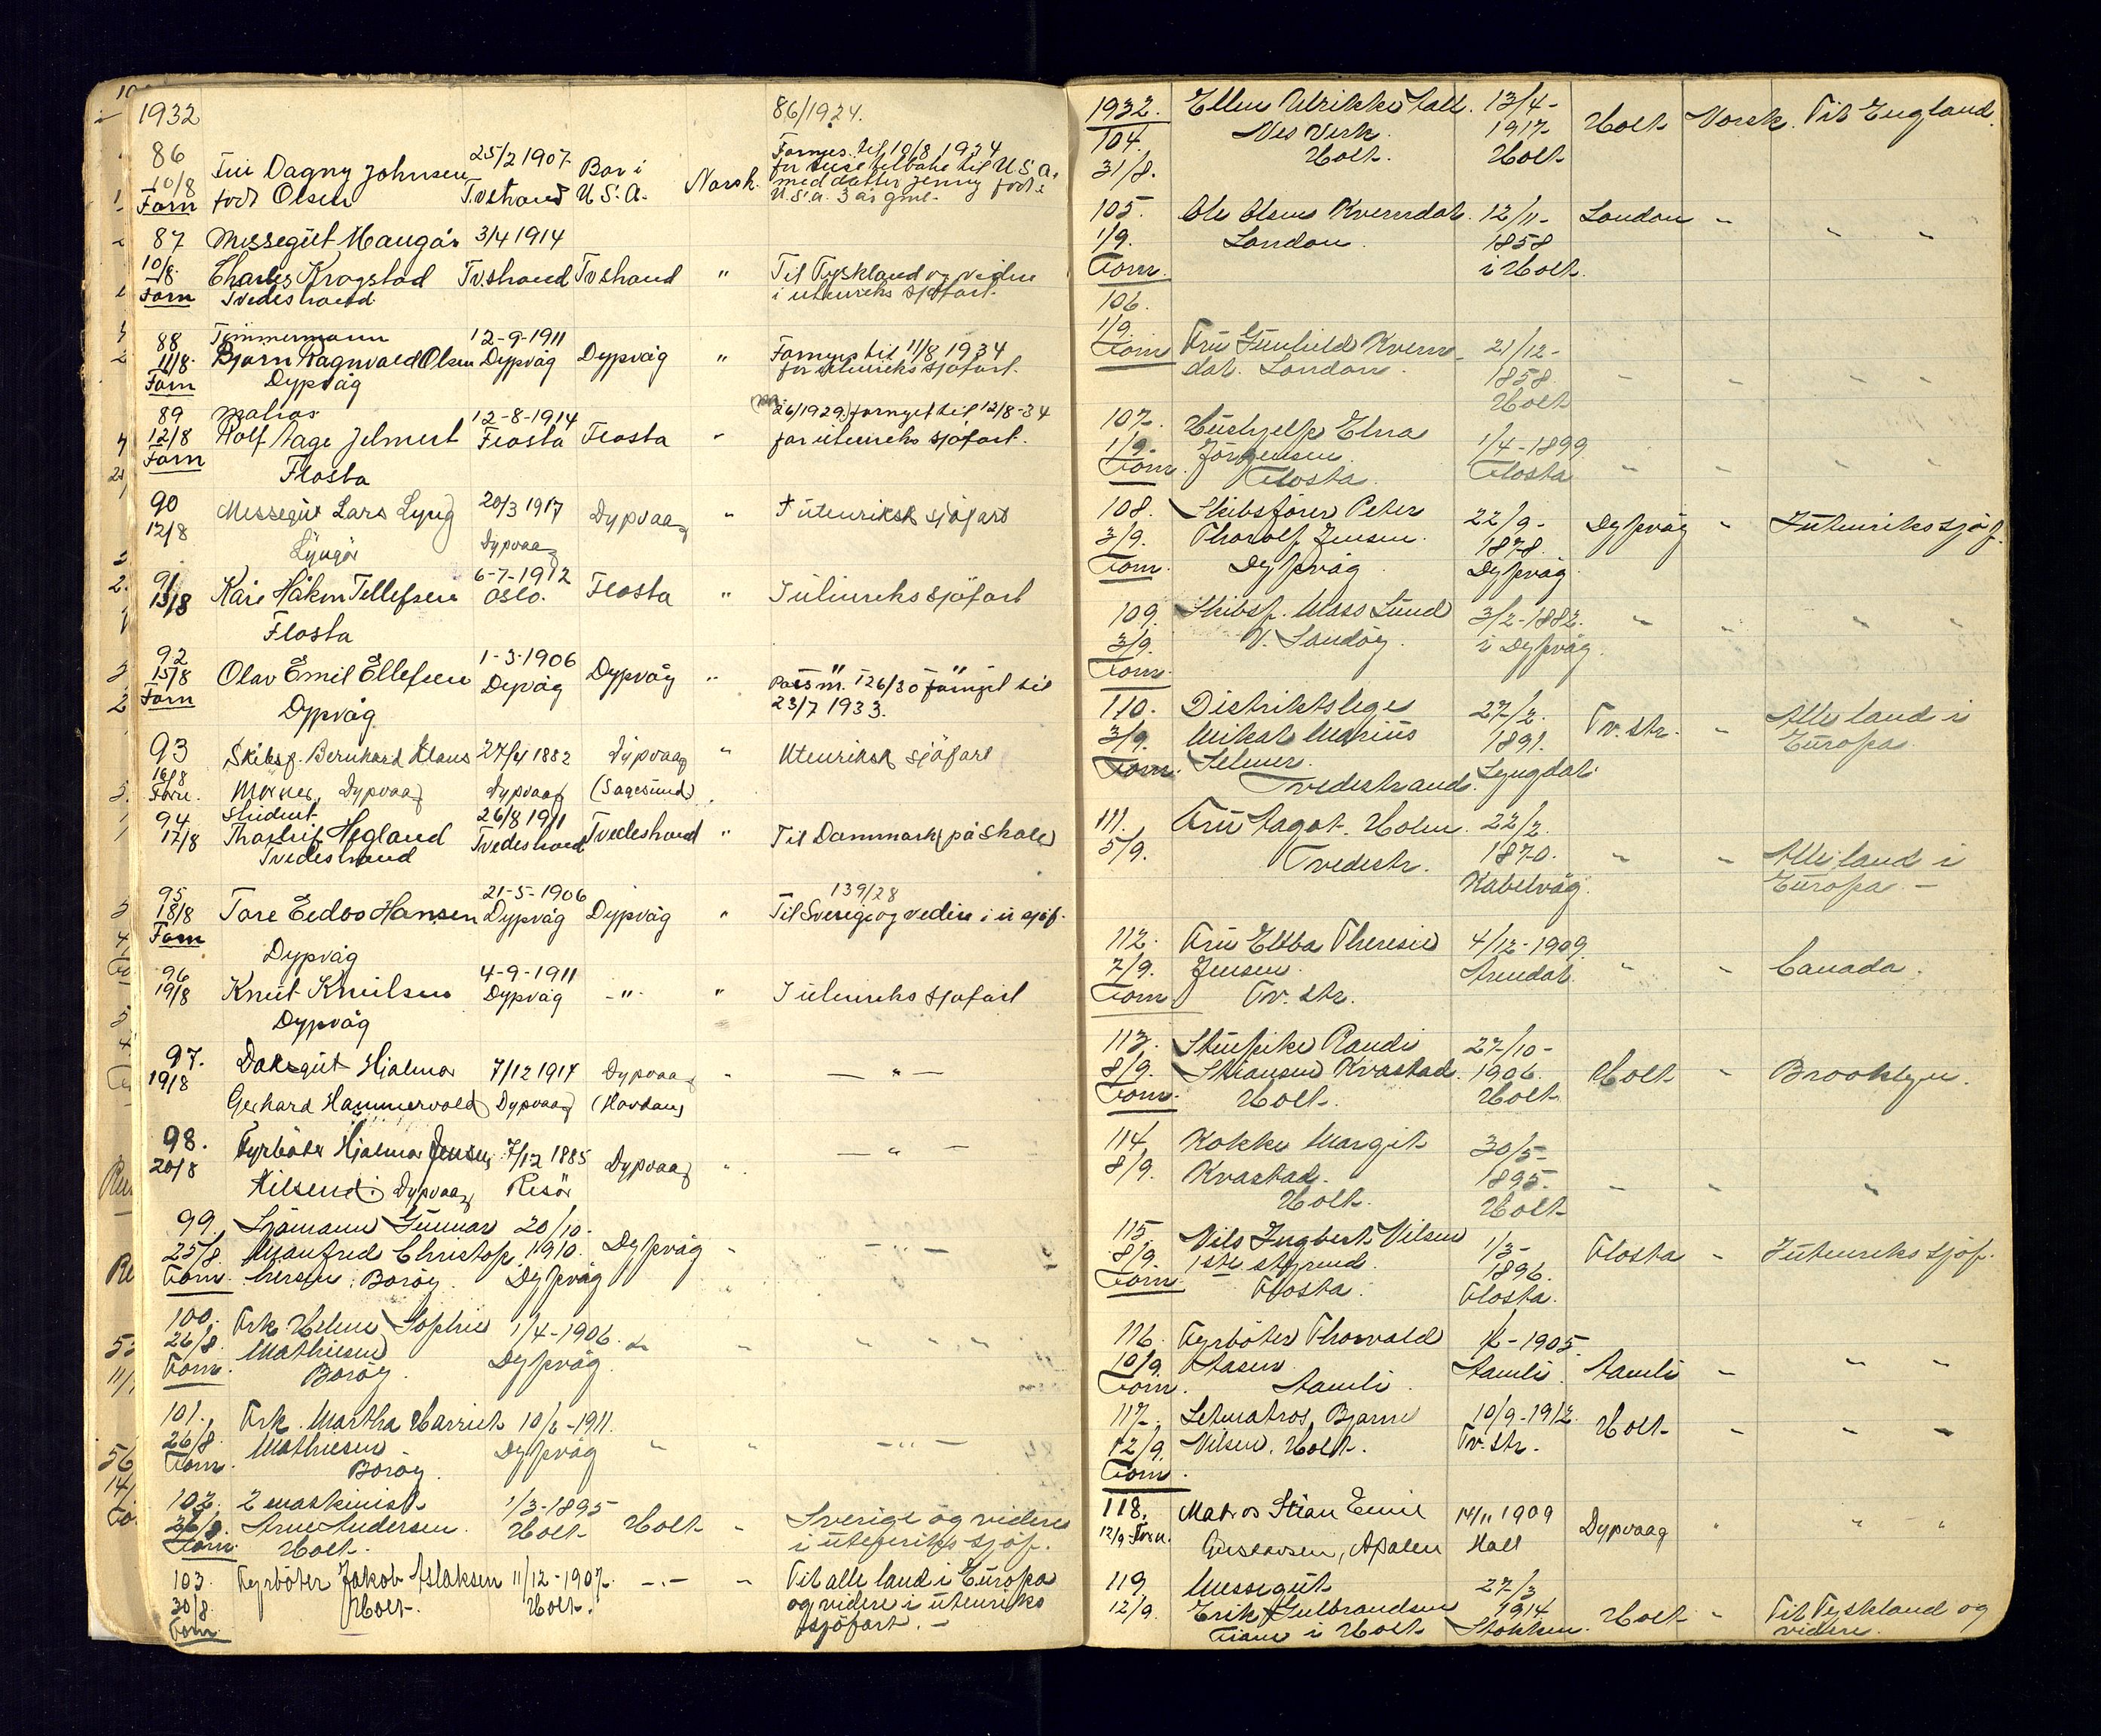 1932
86/1924.
86 Fru Dagny Johnsen 25/2 1907 Bor i Norsk. Fornyes til 10/8 1934
10/8 født Olsen Tvstrand U.S.A. for reise tilbake til U.S.A.
Forn med datter Jenny født i
U.S.A. 3 år gml.
87 Messegut Haugår 3/4 1914
10/8 Charles Krogstad Tv.strand Tvstrand " Til Tyskland og videre
Forn Tvedestrand i utenriks sjøfart.
88 Tømmermann 12-9-1911
11/8 Bjarn Ragnvald Olsen Dypvåg Dypvåg " Fornyes til 11/8 1934
Forn Dypvåg for utenriks sjøfart.
89 Matros 12-8-1914 26/1929) fornyet til 12/8-34
12/8 Rolf Aage Jelmert Flosta Flosta " for utenriks sjøfart.
Forn Flosta
90 Messegut Lars Lyng 20/3 1917 Dypvaag " I utenriksk sjøfart
12/8 Lyngør Dypvaag
91 Kåre Håkon Tellefsen 6-7-1912 Flosta " I utenriks sjøfart
13/8 Flosta Oslo.
92 1-3-1906
15/8 Olav Emil Ellefsen Dypvåg Dypvåg " " "
Forn Dypvåg Pass nr. 126/30 fornyet til
23/7 1933.
93 Skibsf. Bernhard Klaus 27/4 1882 Dypvaag " Utenriksk sjøfart
16/8
Forn. Mørner, Dypvaag Dypvaag (Sagesund)
94 Student 26/8 1911
17/8 Thorleif Hegland Tvedestrand Tvedestrand " Til Danmark (på skole)
Tvedestrand
95 21-5-1906 139/28
18/8 Tore Eedoo Hansen Dypvåg Dypvåg " Til Sverige og videre i u sjøf.
Forn Dypvåg
96 4-9-1911
19/8 Knut Knutsen Dypvåg -"- " I utenriks sjøfart
Dypvåg
97. Daksgut Hjalmar 7/12 1917 Dypvaag " — " —
19/8 Gerhard Hammervold Dypvaag (Hovdan)
98. Fyrbøter Hjalmar Jensen 7/12 1885 Dypvaag " — " —
20/8 Kilsund. Dypvaag Risør
99. Sjømann Gunnar 20/10-
25/8 Manfred Christop. 1910. Dypvåg " — " —
Forn. hersen, Borøy. Dypvåg
100. Frk. Helene Sophie 1/4-1906. " " " " "
26/8 Mathiesen Dypvåg.
Forn. Borøy.
101. Frk. Martha Harriet 10/2-1911.
26/8. Mathiesen Dypvåg " " — " —
Forn. Borøy.
102. 2 maskinist 1/3-1895
26/8. Arne Andersen. Holt Holt " Sverige og videre
Forn. Holt. i utenriks sjøf.
103. Fyrbøter Jakob Aslaksen 11/12-1907. —"— " Til alle land i Europa
30/8. Holt. Holt. og videre i utenriks
Forn. sjøfart. —
1932. Ellen Ulrikke Aall. 13/4-
104. Nes Verk. 1917 Holt Norsk. Til England.
31/8. Holt. Holt
105. Ole Olsen Kverndal. 12/11- London " " "
1/9. London. 1858
Forn. i Holt.
106.
1/9. Fru Gunhild Kvern- 21/12-
Forn dal. London. 1858. " " " "
Holt
107. Hushjelp Elna
1/9. Jørgensen 1/4-1899
Forn. Flosta. Flosta " " " "
108. Skibsfører Peter 22/9- Dypvåg " I utenriks sjøf.
3/9. Thorolf Jensen. 1878.
Forn. Dypvåg Dypvåg.
109. Skibsf. Mass Lund 3/2-1882. " " " "
3/9. V. Sandøy. i Dypvåg.
Forn.
110. Distriktslege 27/2. Alle land i
3/9. Mikal Marius 1891. Tv.str. " Europa.
Forn. Selmer.
Tvedestrand. Lyngdal.
111. Fru Aagot Holm. 22/2.
5/9. Tvedestr. 1870. " " Alle land i
Kabelvåg. Europa. —
112. Fru Ebba Theresie 4/12-1909.
7/9. Jensen. Arendal. " " Canada.
Forn Tv.str.
113. Stuepike Randi 27/10-
8/9. Stiansen Kvastad. 1906. Holt " Brooklyn.
Forn. Holt. Holt
114 Kokke Margit 30/5-
8/9. Kvastad. 1895. " " "
Holt. Holt
115. Nils Ingbert Nilsen 1/3-
8/9. 1ste styrmd. 1896. Flosta " I utenriks sjøf.
Forn. Flosta. Flosta.
116. Fyrbøter Thorvald -1905.
10/9. Aasen. Aamli. Aamli " " "
Forn. Aamli.
117. Letmatros Bjarne 10/9-1912. Holt " " "
12/9. Nilsen. Holt. Tv.str.
Forn.
118. Matros Stian Emil 14/11 1909 Dypvaag " " "
12/9-Forn. Gustavsen, Apalen Holt
119. Messegut 27/3
12/9. Erik Gulbrandsen 1914 Holt " Til Tyskland og
Fiane i Holt Stokken. videre.